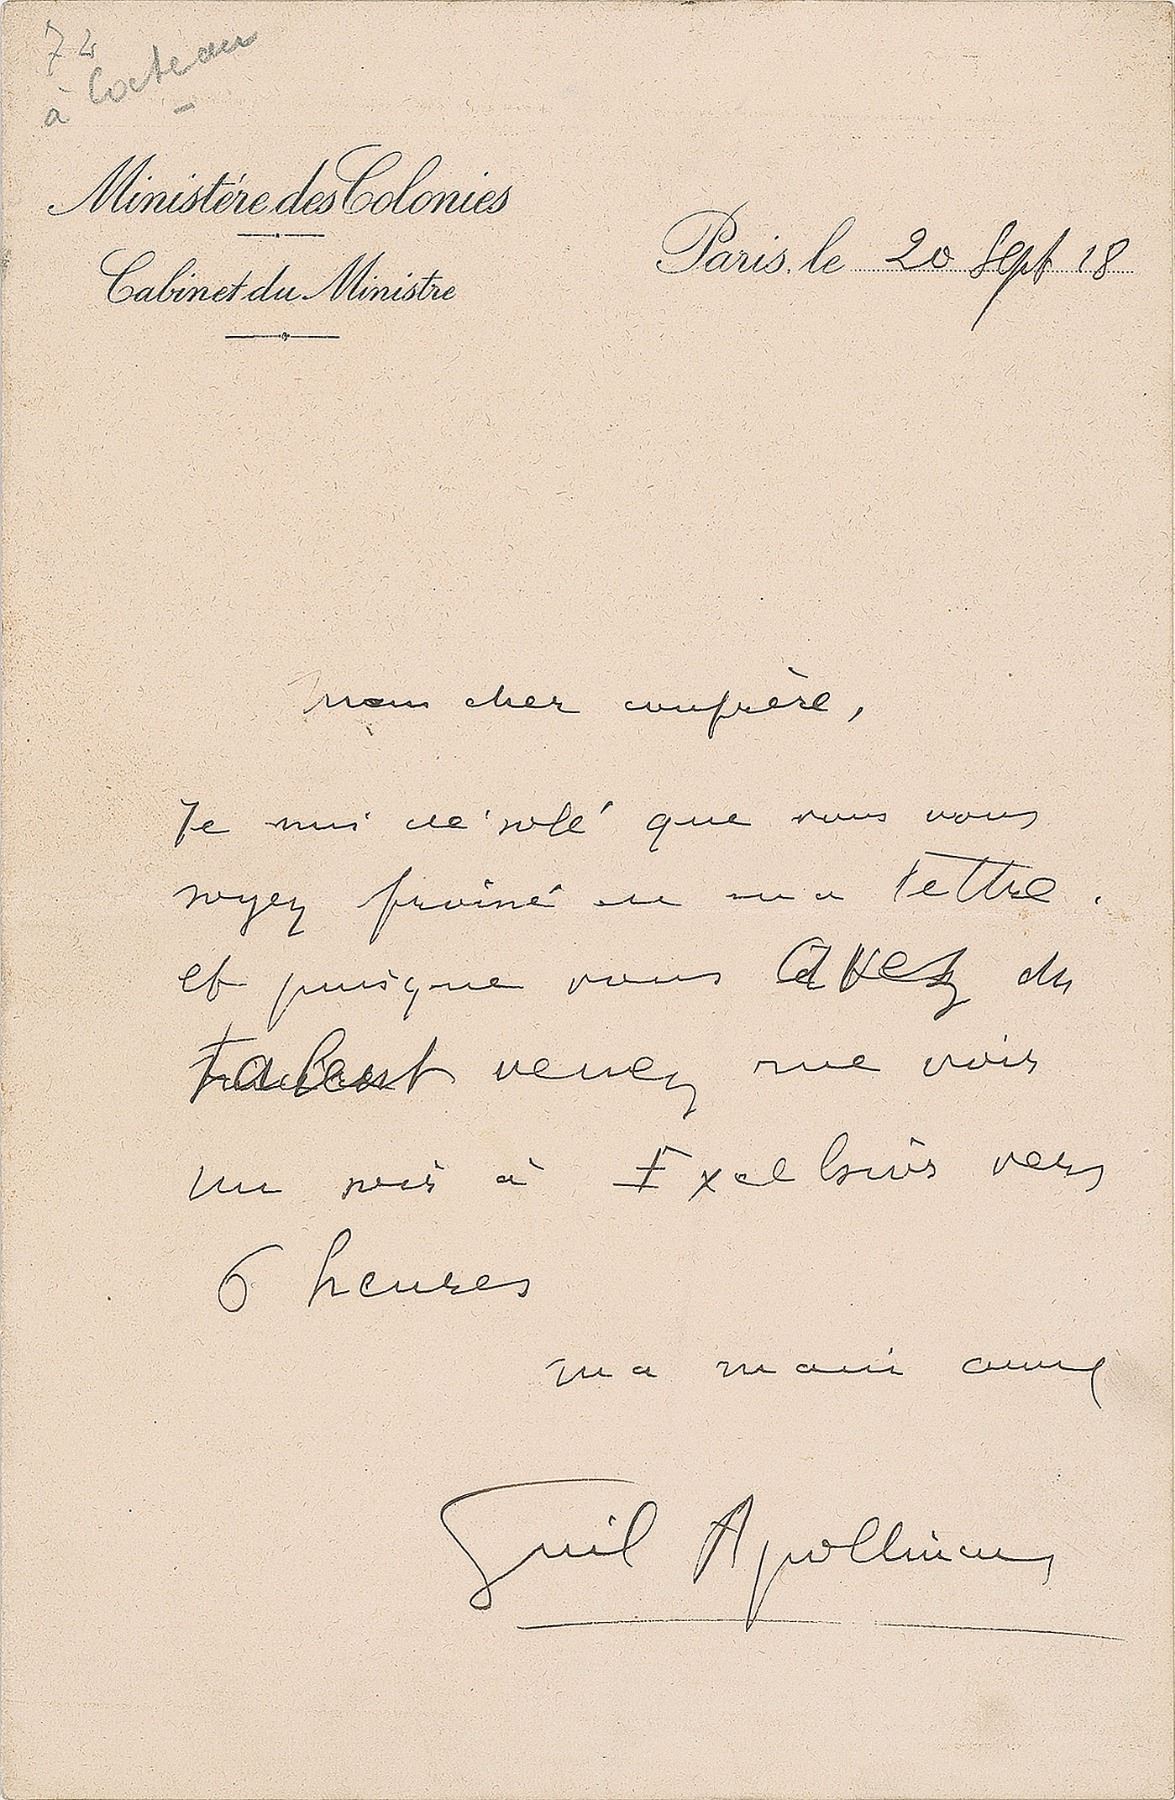 74
à Cocteau
Ministère des Colonies
Cabinet du Ministre
Paris, le 20 Sept 18
Mon cher confrère,
Je suis désolé que vous vous
soyez froissé de ma lettre.
et puisque vous avez du
talent venez me voir
un soir à Excelsior vers
6 heures
ma main amie
Guil Apollinaire